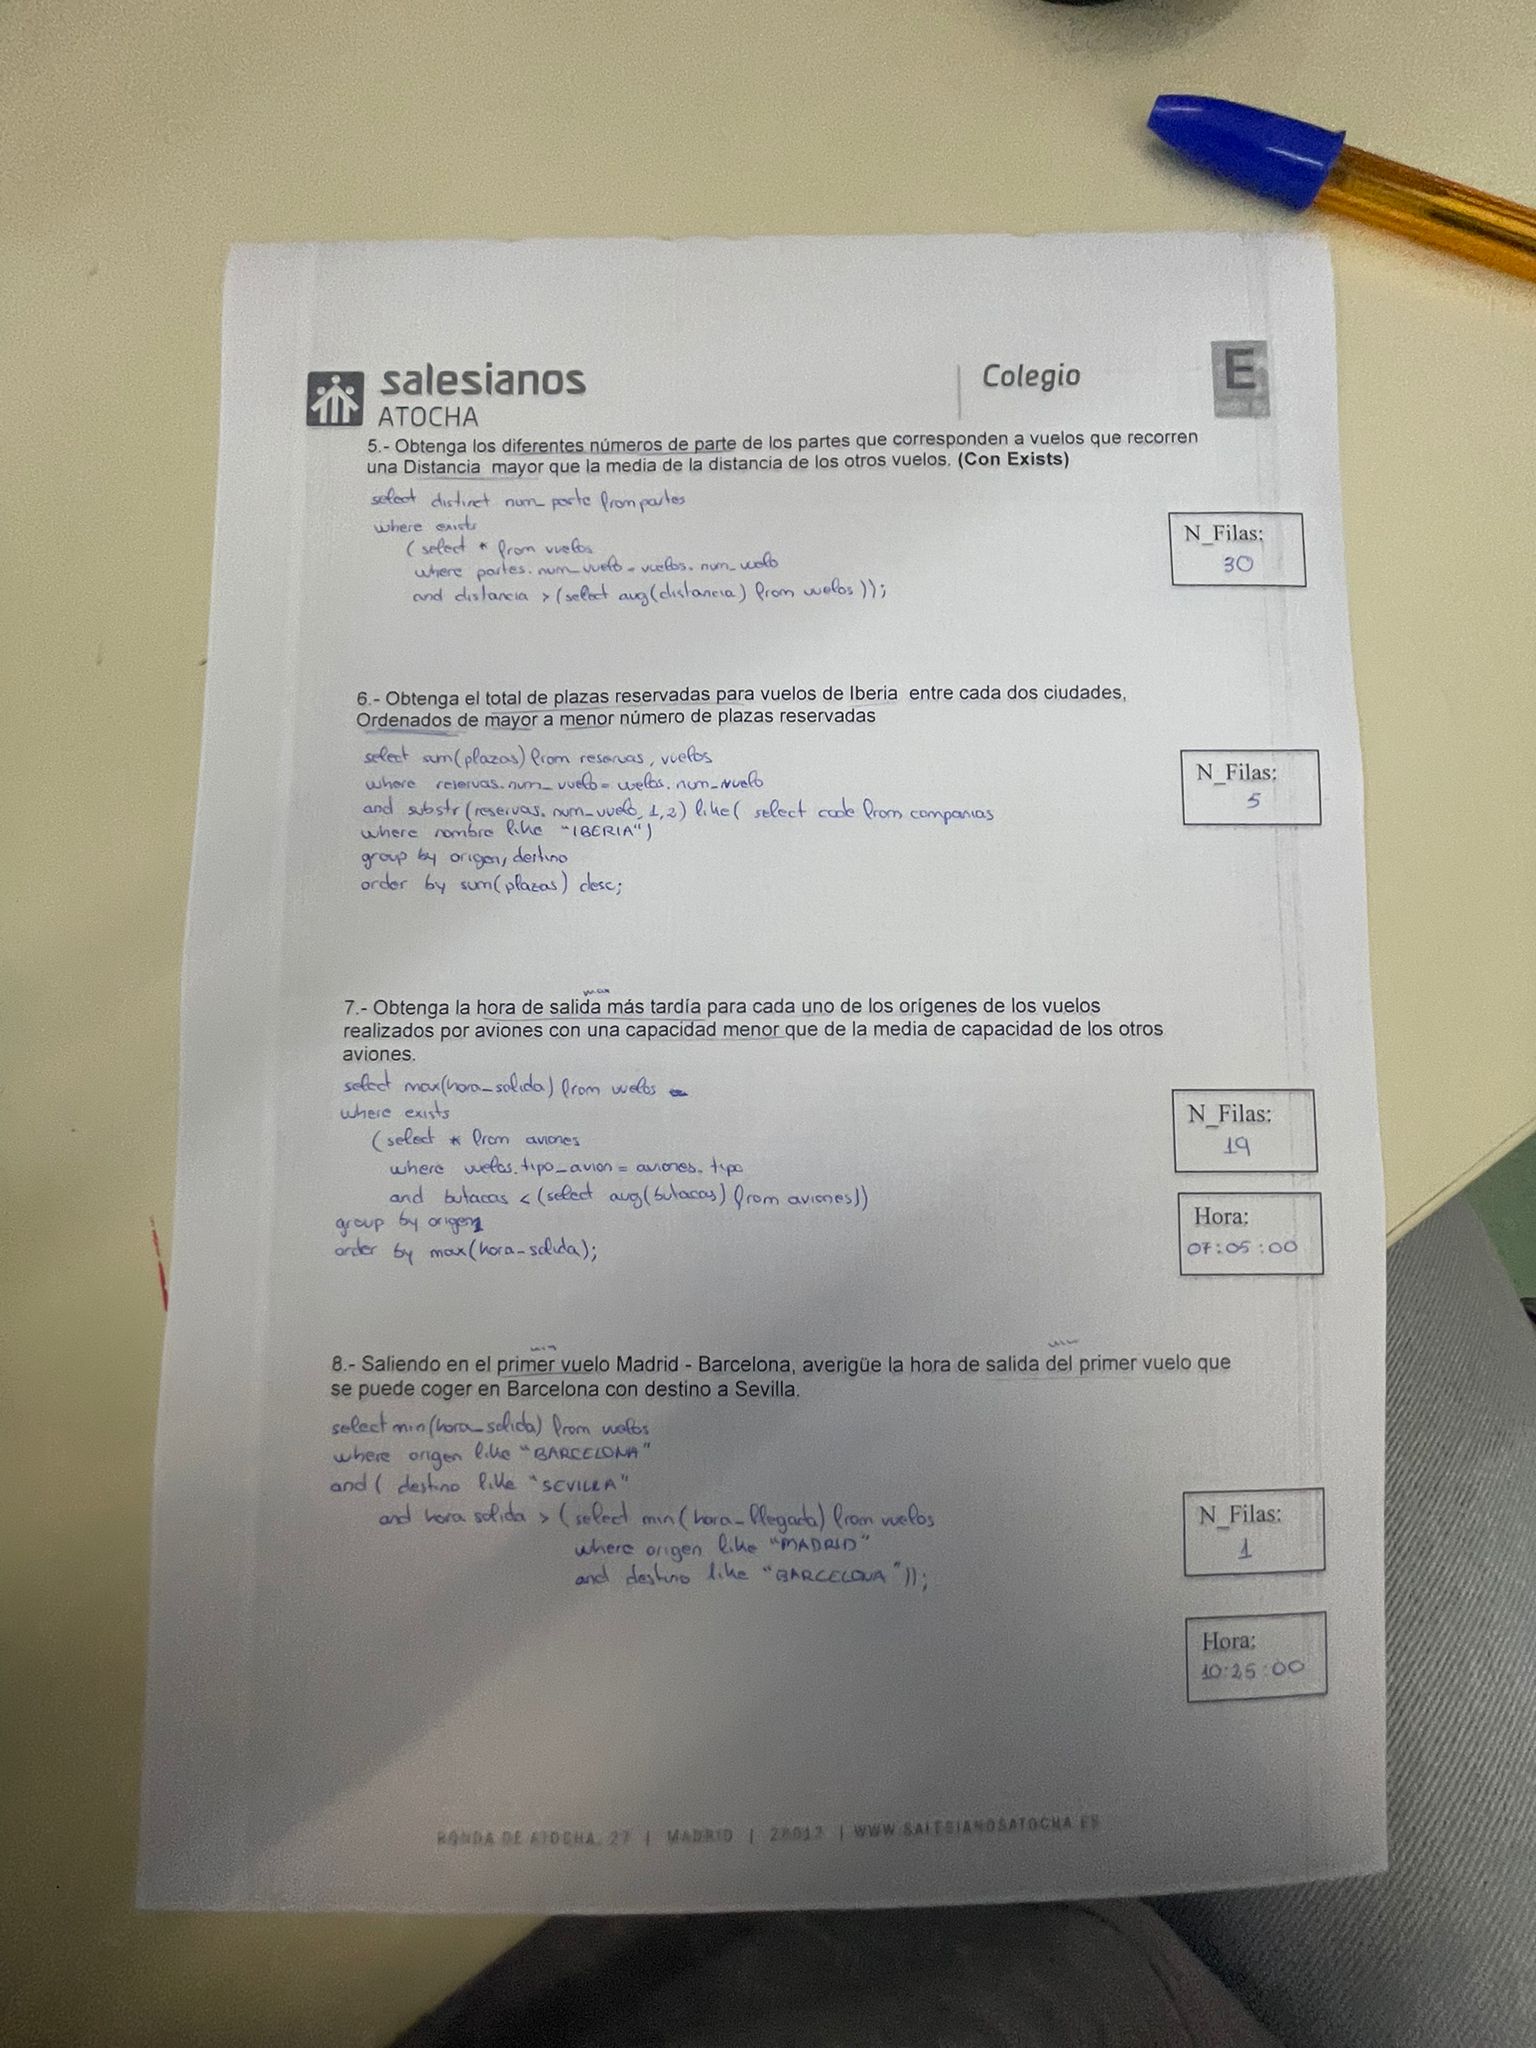 salesianos
ATOCHA
Colegio
E
5.- Obtenga los diferentes números de parte de los partes que corresponden a vuelos que recorren
una Distancia mayor que la media de la distancia de los otros vuelos. (Con Exists)
select distinct num_parte from partes
where exists
( select * from vuelos
where partes.num_vuelo = vuelos.num_vuelo
and distancia > (select avg(distancia) from vuelos));
N_Filas:
30
6.- Obtenga el total de plazas reservadas para vuelos de Iberia entre cada dos ciudades,
Ordenados de mayor a menor número de plazas reservadas
select sum(plazas) from reservas, vuelos
where reservas.num_vuelo = vuelos.num_vuelo
and substr(reservas.num_vuelo, 1,2) like( select code from companias
where nombre like "IBERIA")
group by origen, destino
order by sum(plazas) desc;
N_Filas:
5
max
7.- Obtenga la hora de salida más tardía para cada uno de los orígenes de los vuelos
realizados por aviones con una capacidad menor que de la media de capacidad de los otros
aviones.
select max(hora_salida) from vuelos
where exists
(select * from aviones
where vuelos.tipo_avion = aviones.tipo
and butacas < (select avg(butacas) from aviones))
group by origen
order by max(hora_salida);
N_Filas:
19
Hora:
07:05:00
min min
8.- Saliendo en el primer vuelo Madrid - Barcelona, averigüe la hora de salida del primer vuelo que
se puede coger en Barcelona con destino a Sevilla.
select min(hora_salida) from vuelos
where origen like "BARCELONA"
and ( destino like "SEVILLA"
and hora salida > ( select min(hora_llegada) from vuelos
where origen like "MADRID"
and destino like "BARCELONA"));
N_Filas:
1
Hora:
10:25:00
RONDA DE ATOCHA, 27 | MADRID | 28012 | WWW.SALESIANOSATOCHA.ES